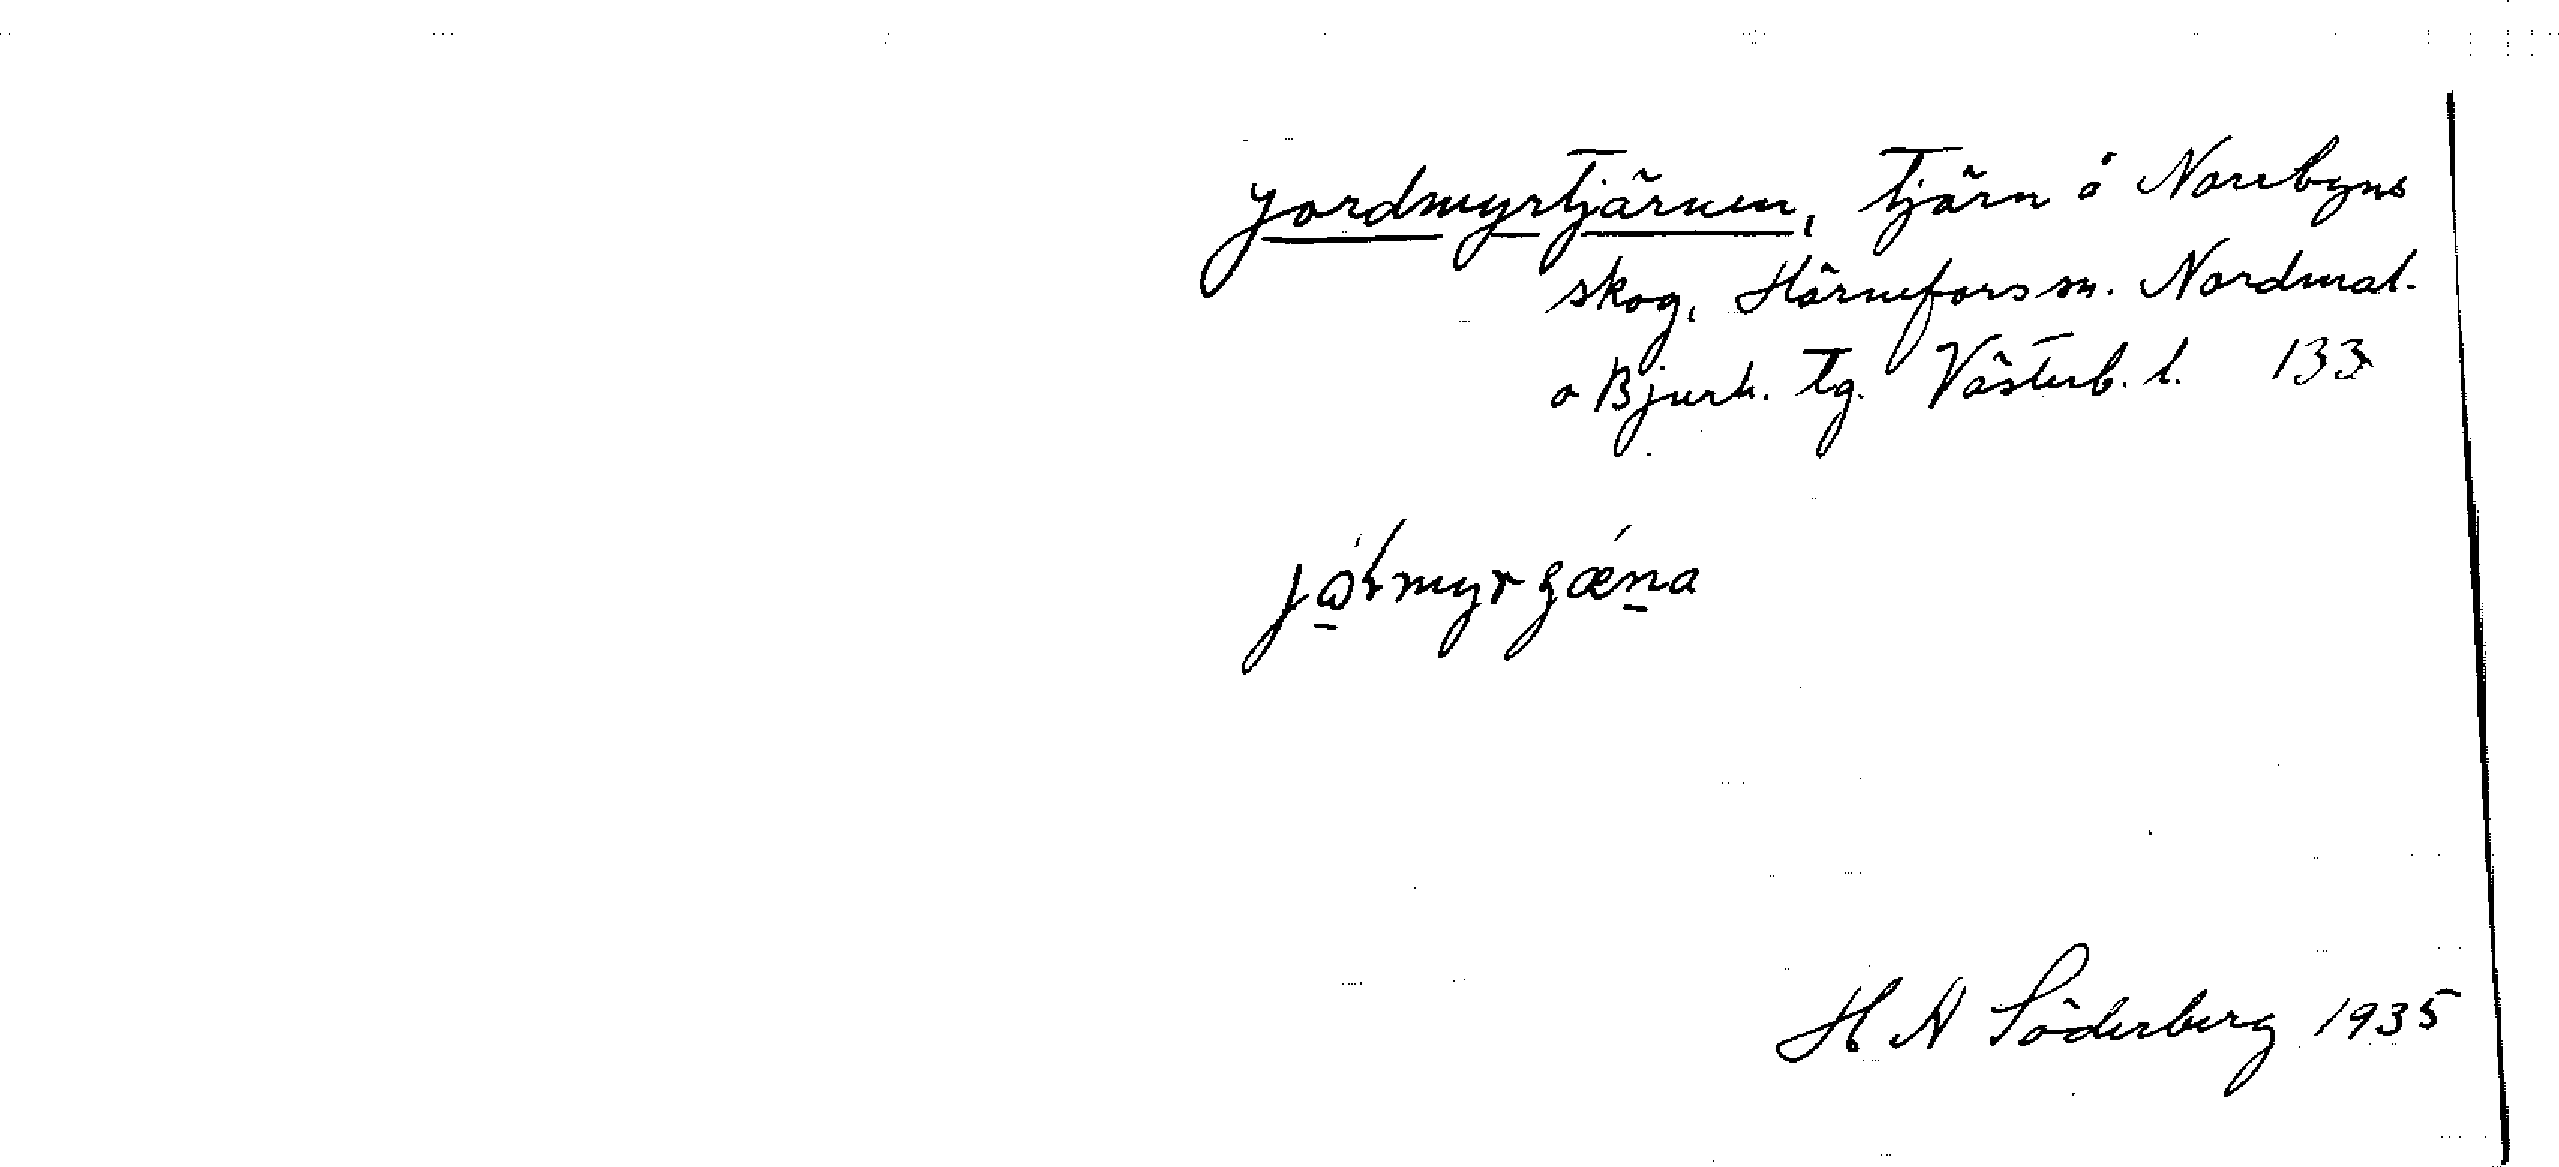 Jordmyrtjärnen, tjärn å Norrbyns
skog, Hörnefors sn. Nordmal.
o Bjurh. tg. Västerb. l. 133
H A Söderberg 1935